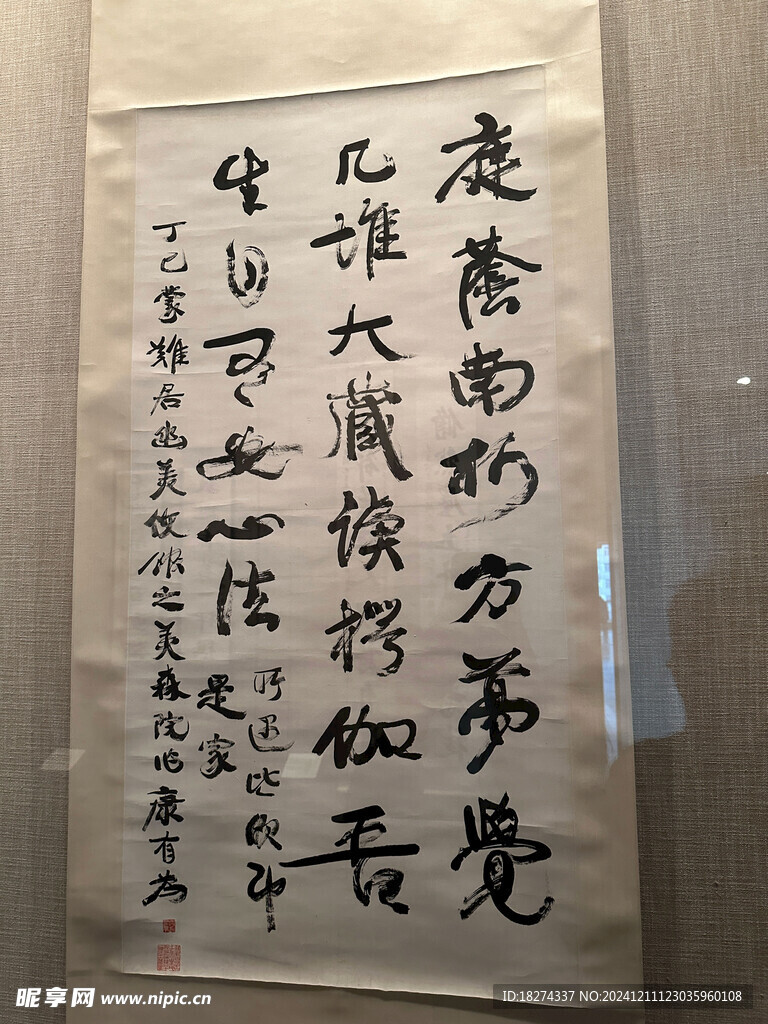 庭蔭南榮方夢覺
几堆大藏讀楞伽吾
生自有安心法
所遇皆欣即
是家
丁巳蒙難居幽美使館之美森院作 康有為
昵享网 www.nipic.cn
ID:18274337 NO:20241211123035960108